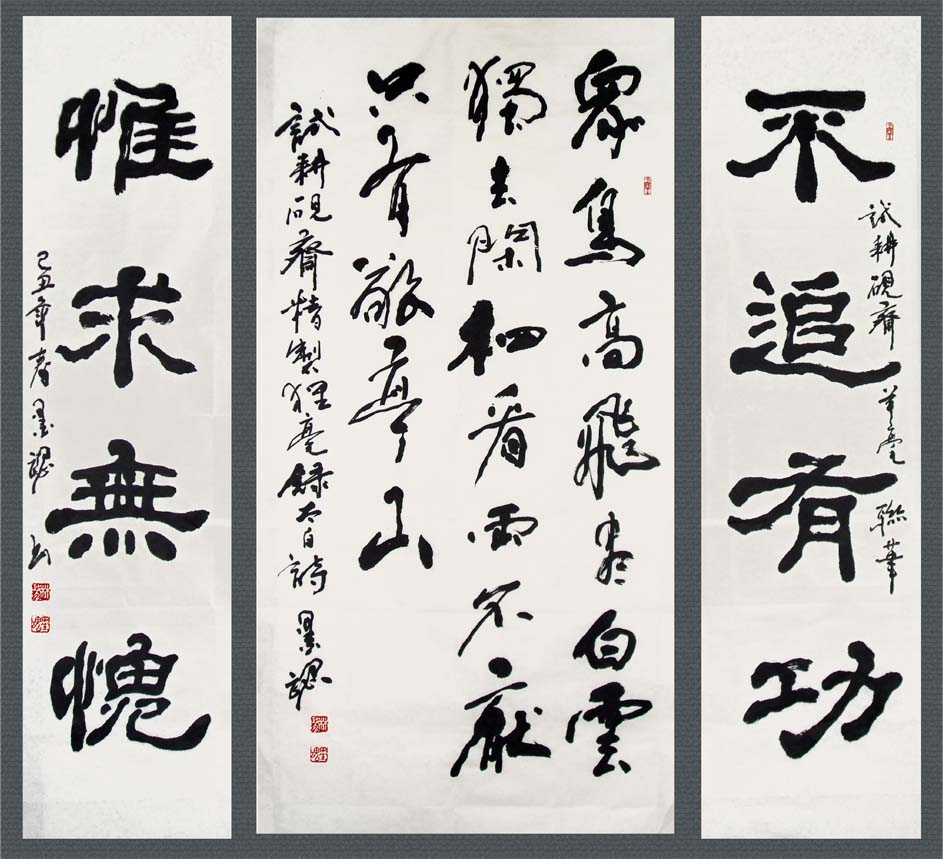 不追有功
試耕硯齋羊毫聯筆
眾鳥高飛盡白雲
獨去閑相看兩不厭
只有敬亭山
試耕硯齋精製狸毫錄太白詩 墨
惟求無愧
己丑年春墨 書